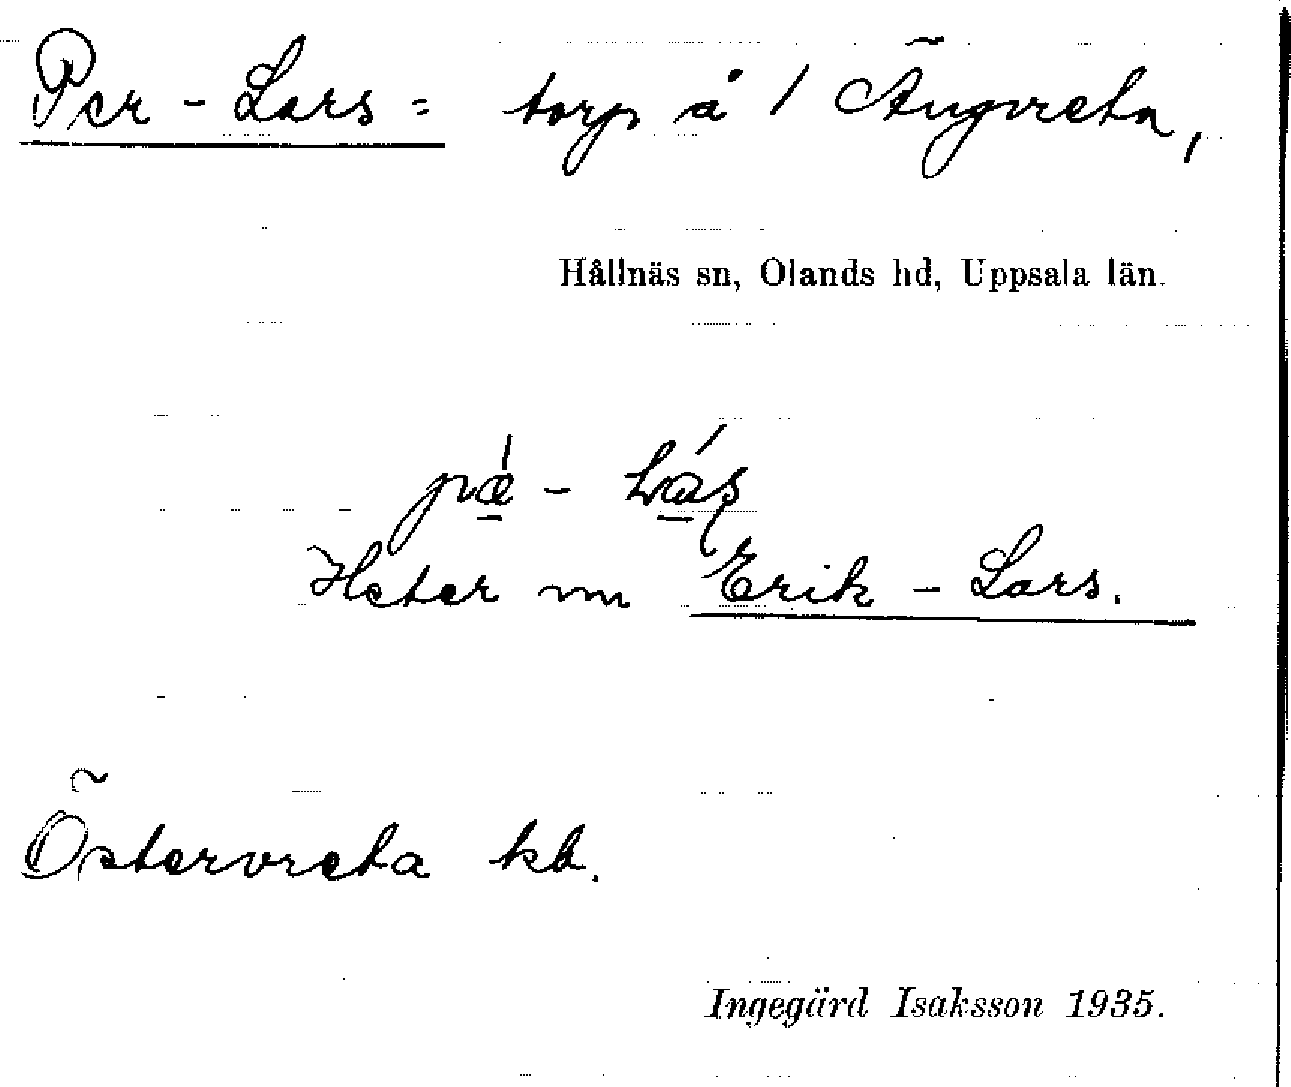 Per - Lars = torp å 1 Ängvreta,
Hållnäs sn, Olands hd, Uppsala län.
pæ̀ - Lás
Heter nu Erik - Lars.
Östervreta kb.
Ingegärd Isaksson 1935.